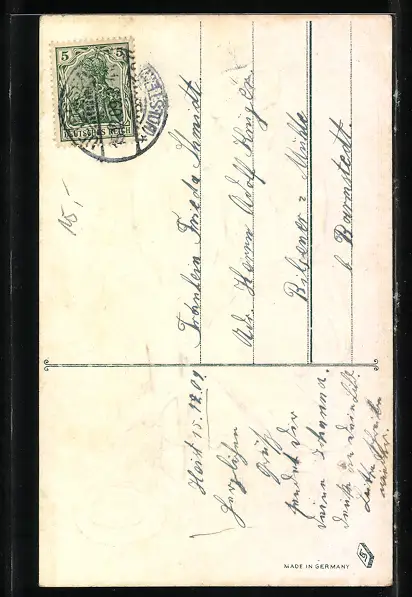 5
DEUTSCHES REICH
15,-
Fräulein Frieda Schmidt.
Adr. Herrn Adolf Krüger
Bilsener = Mühle
b. Barmstedt.
Heist 15.12.09
Herzlichen
Gruß
sendet Dir
Deine Johanna.
MADE IN GERMANY